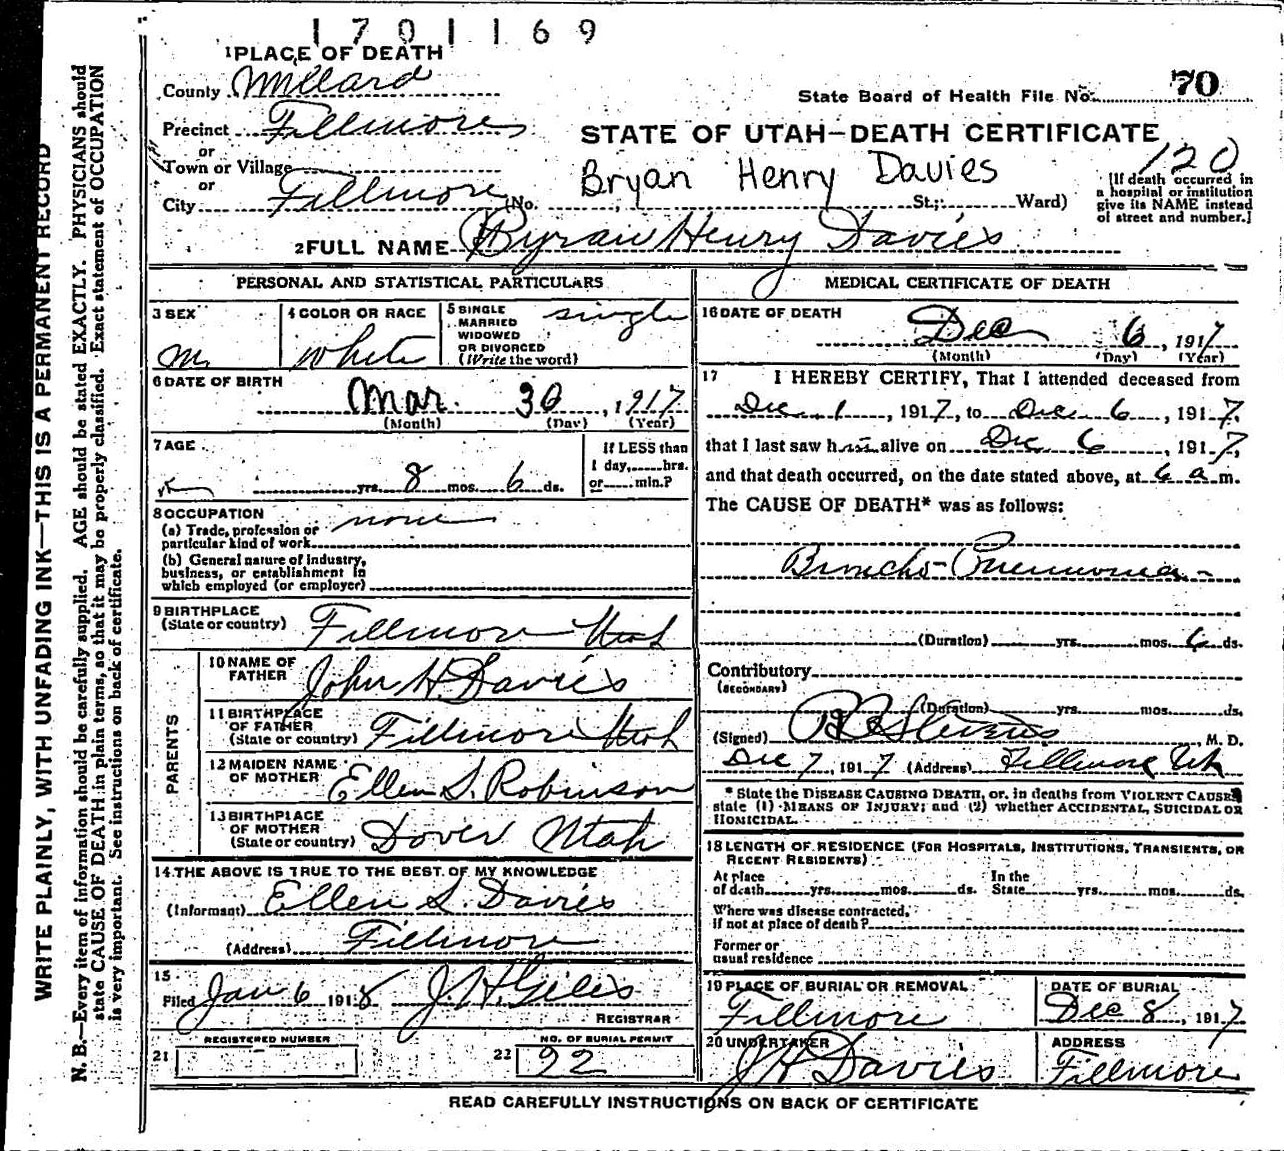 1701169
1 PLACE OF DEATH
County Millard
State Board of Health File No. 70
Precinct Fillmore
STATE OF UTAH—DEATH CERTIFICATE
or
Town or Village
120
or
Bryan Henry Davies
City Fillmore (No. St.; Ward)
[If death occurred in a hospital or institution give its NAME instead of street and number.]
2 FULL NAME Byran Henry Davies
PERSONAL AND STATISTICAL PARTICULARS
3 SEX m.
4 COLOR OR RACE white
5 SINGLE MARRIED WIDOWED OR DIVORCED (Write the word) single
6 DATE OF BIRTH
Mar. 30, 1917
(Month) (Day) (Year)
7 AGE
yrs. 8 mos. 6 ds.
If LESS than 1 day, hrs. or min.?
8 OCCUPATION
(a) Trade, profession or particular kind of work none
(b) General nature of industry, business, or establishment in which employed (or employer)
9 BIRTHPLACE (State or country) Fillmore Utah
PARENTS
10 NAME OF FATHER John H. Davies
11 BIRTHPLACE OF FATHER (State or country) Fillmore Utah
12 MAIDEN NAME OF MOTHER Ellen S. Robinson
13 BIRTHPLACE OF MOTHER (State or country) Dover Utah
14 THE ABOVE IS TRUE TO THE BEST OF MY KNOWLEDGE
(Informant) Ellen S. Davies
(Address) Fillmore
15
Filed Jan 6 1918 J. H. Giles
REGISTRAR
REGISTERED NUMBER
21
NO. OF BURIAL PERMIT
22 92
MEDICAL CERTIFICATE OF DEATH
16 DATE OF DEATH
Dec 6, 1917
(Month) (Day) (Year)
17 I HEREBY CERTIFY, That I attended deceased from
Dec 1, 1917, to Dec 6, 1917,
that I last saw him alive on Dec 6, 1917,
and that death occurred, on the date stated above, at 6 a m.
The CAUSE OF DEATH* was as follows:
Broncho-Pneumonia
(Duration) yrs. mos. 6 ds.
Contributory
(SECONDARY)
(Duration) yrs. mos. ds.
(Signed) Stevens, M. D.
Dec 7, 1917 (Address) Fillmore Ut
* State the DISEASE CAUSING DEATH, or, in deaths from VIOLENT CAUSES
state (1) MEANS OF INJURY; and (2) whether ACCIDENTAL, SUICIDAL OR
HOMICIDAL.
18 LENGTH OF RESIDENCE (FOR HOSPITALS, INSTITUTIONS, TRANSIENTS, OR
RECENT RESIDENTS)
At place of death yrs. mos. ds. In the State yrs. mos. ds.
Where was disease contracted,
if not at place of death?
Former or
usual residence
19 PLACE OF BURIAL OR REMOVAL
Fillmore
DATE OF BURIAL
Dec 8, 1917
20 UNDERTAKER
J H Davies
ADDRESS
Fillmore
READ CAREFULLY INSTRUCTIONS ON BACK OF CERTIFICATE
WRITE PLAINLY, WITH UNFADING INK—THIS IS A PERMANENT RECORD
N. B.—Every item of information should be carefully supplied. AGE should be stated EXACTLY. PHYSICIANS should
state CAUSE OF DEATH in plain terms, so that it may be properly classified. Exact statement of OCCUPATION
is very important. See instructions on back of certificate.